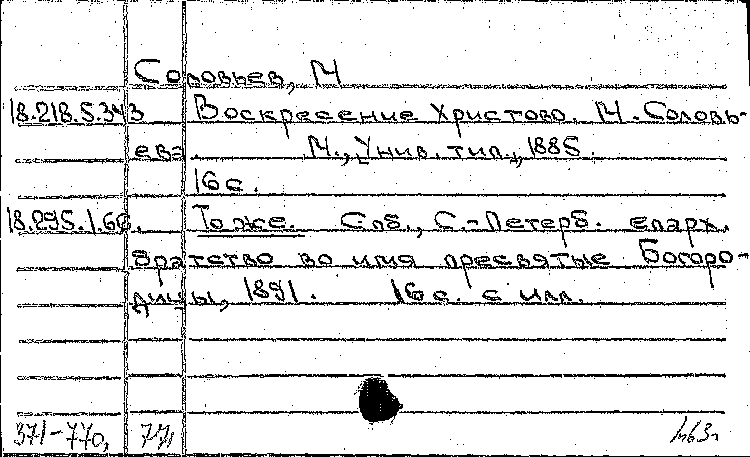 Соловьев, М
18.218.5.343 Воскресение Христово. М. Соловь-
ева М., [Унив. тип.], 1885.
16 с.
18.295.1.66. То же. Спб., С.-Петерб. епарх.
братство во имя пресвятые Богоро-
дицы, 1891. 16 с. с илл.
371-770,